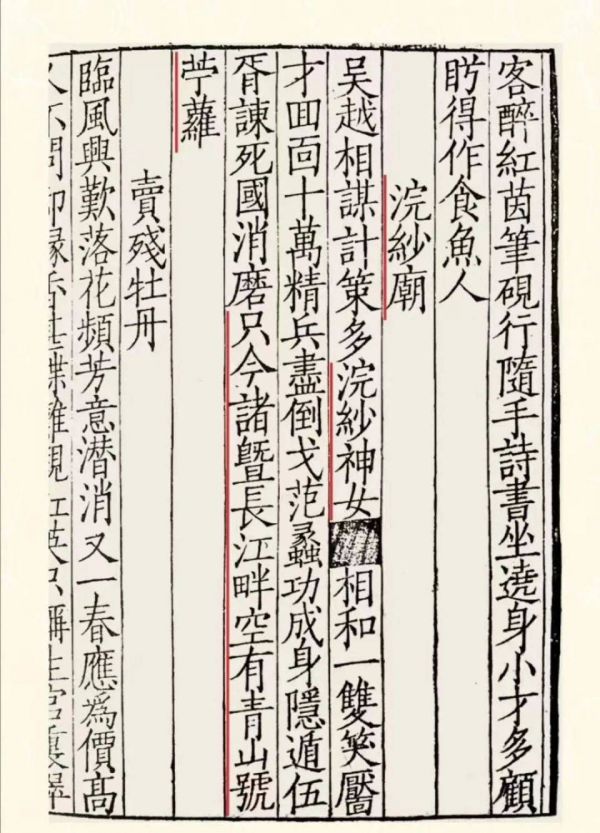 客醉紅茵筆硯行隨手詩書坐遶身小才多顧
眄得作食魚人
浣紗廟
吳越相謀計策多浣紗神女相和一雙笑靨
才囬靣十萬精兵盡倒戈范蠡功成身隱遁伍
胥諫死國消磨只今諸暨長江畔空有青山號
苧蘿
賣殘牡丹
臨風興歎落花頻芳意潛消又一春應爲價高
人不問却緣香甚蝶難親紅英只稱生宮裏翠